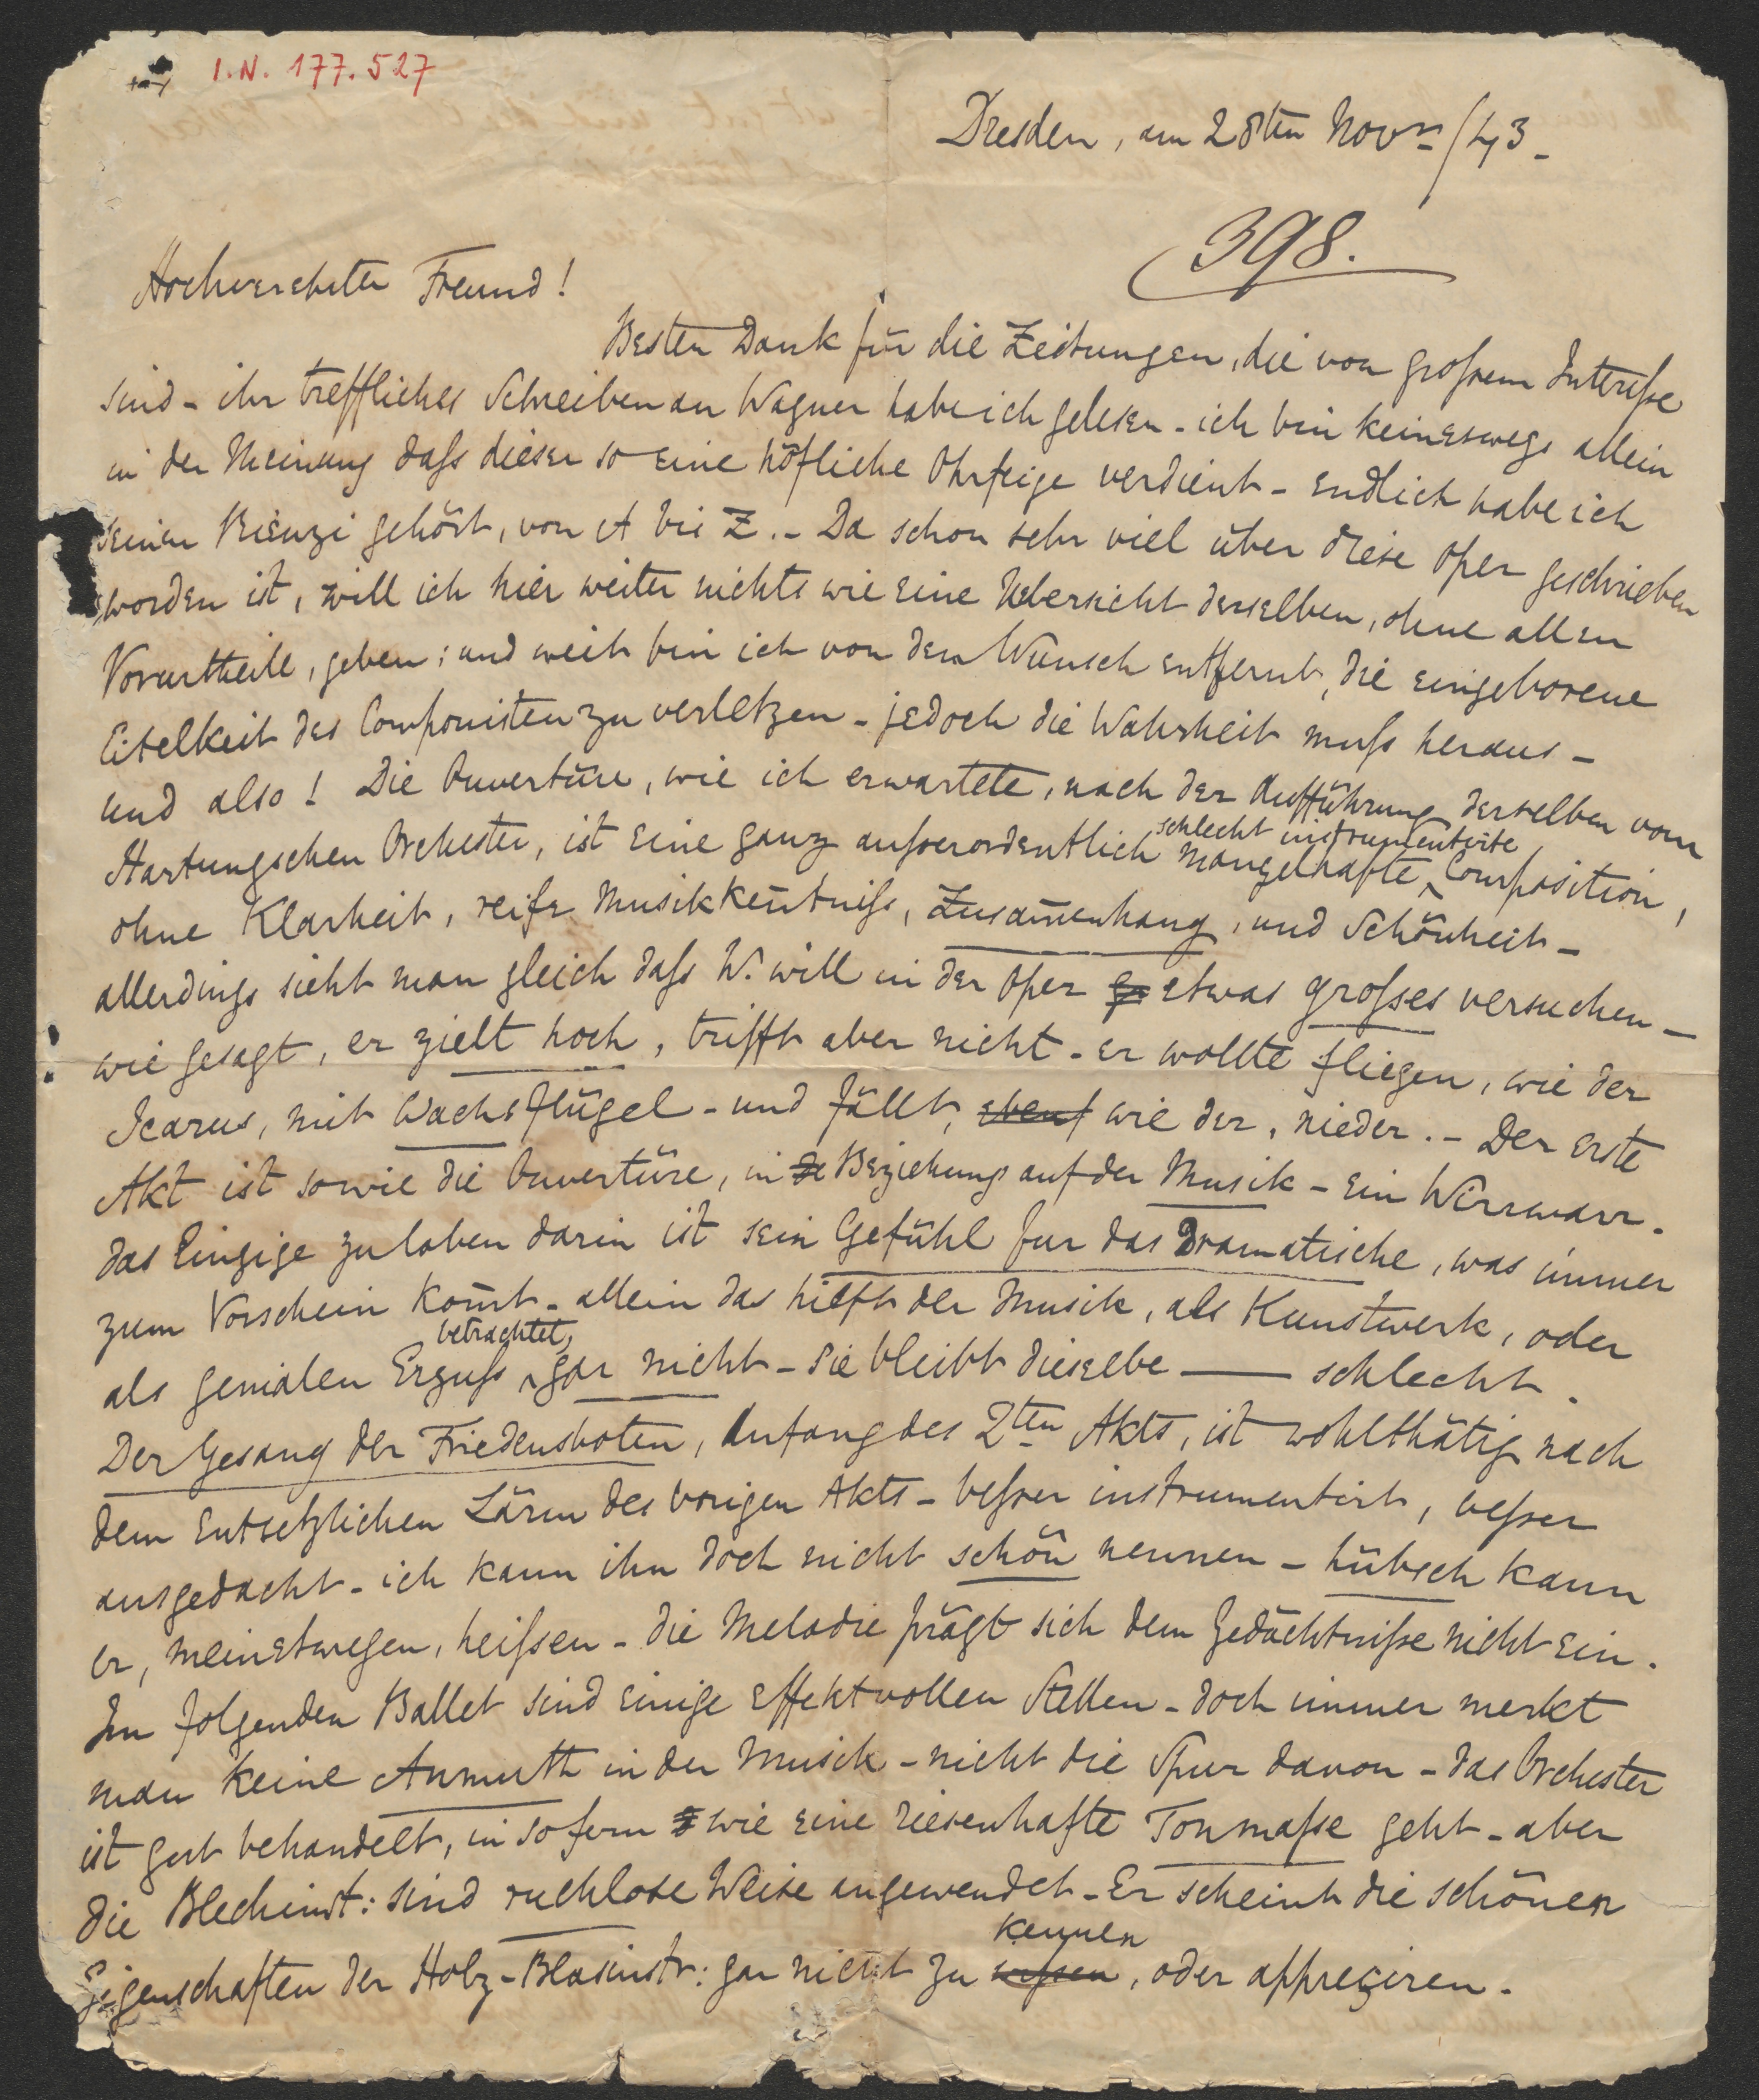 I.N. 177.527
Dresden, am 28ten Novr/43_
398.
Hochverehrter Freund!
Besten Dank für die Zeitungen, die von großem Interesse
sind - ihr treffliches Schreiben an Wagner habe ich gelesen - ich bin keineswegs allein
in der Meinung daß dieser so eine höfliche Ohrfeige verdient - endlich habe ich
seinen Rienzi gehört, von A bis Z. - Da schon sehr viel über diese Oper geschrieben
worden ist, will ich hier weiter nichts wie eine Uebersicht derselben, ohne allen
Vorurtheile, geben; und weit bin ich von dem Wunsch entfernt, die eingeborene
Eitelkeit des Componisten zu verletzen - jedoch die Wahrheit muß heraus -
und also! Die Ouvertüre, wie ich erwartete, nach der Aufführung derselben vom
schlecht instrumentirte
Hartungschen Orchester, ist eine ganz außerordentlich mangelhafte, Composition,
ohne Klarheit, reife Musikkentniß, Zusamenhang, und Schönheit -
allerdings sieht man gleich daß W. will in der Oper etwas großes versuchen -
wie gesagt, er zielt hoch, trifft aber nicht - er wollte fliegen, wie der
Icarus, mit Wachsflügel - und fällt, eben wie der, nieder. - Der erste
Akt ist sowie die Ouvertüre, in de Beziehung auf der Musik - ein Wirrwarr.
das Einzige zu loben darin ist sein Gefühl fur das Dramatische, was immer
zum Vorschein komt - allein das hilft der Musik, als Kunstwerk, oder
betrachtet,
als genialen Erguß gar nicht - sie bleibt dieselbe — schlecht.
Der Gesang der Friedensboten, Anfang des 2ten Akts, ist wohlthätig nach
dem entsetzlichen Lärm des vorigen Akts - beßer instrumentirt, beßer
ausgedacht - ich kann ihn doch nicht schön nennen - hübsch kann
er, meinetwegen, heißen - die Melodie prägt sich dem Gedächtniße nicht ein.
Im folgenden Ballet sind einige effektvollen Stellen - doch immer merkt
man keine Anmuth in der Musik - nicht die Spur davon - das Orchester
ist gut behandelt, in sofern wie eine riesenhafte Tonmaße geht - aber
die Blechinst: sind ruchlose Weise angewendet - Er scheint die schönen
kennen
Eigenschaften der Holz-Blasinstr: gar nicht zu wißen, oder appreçiren.